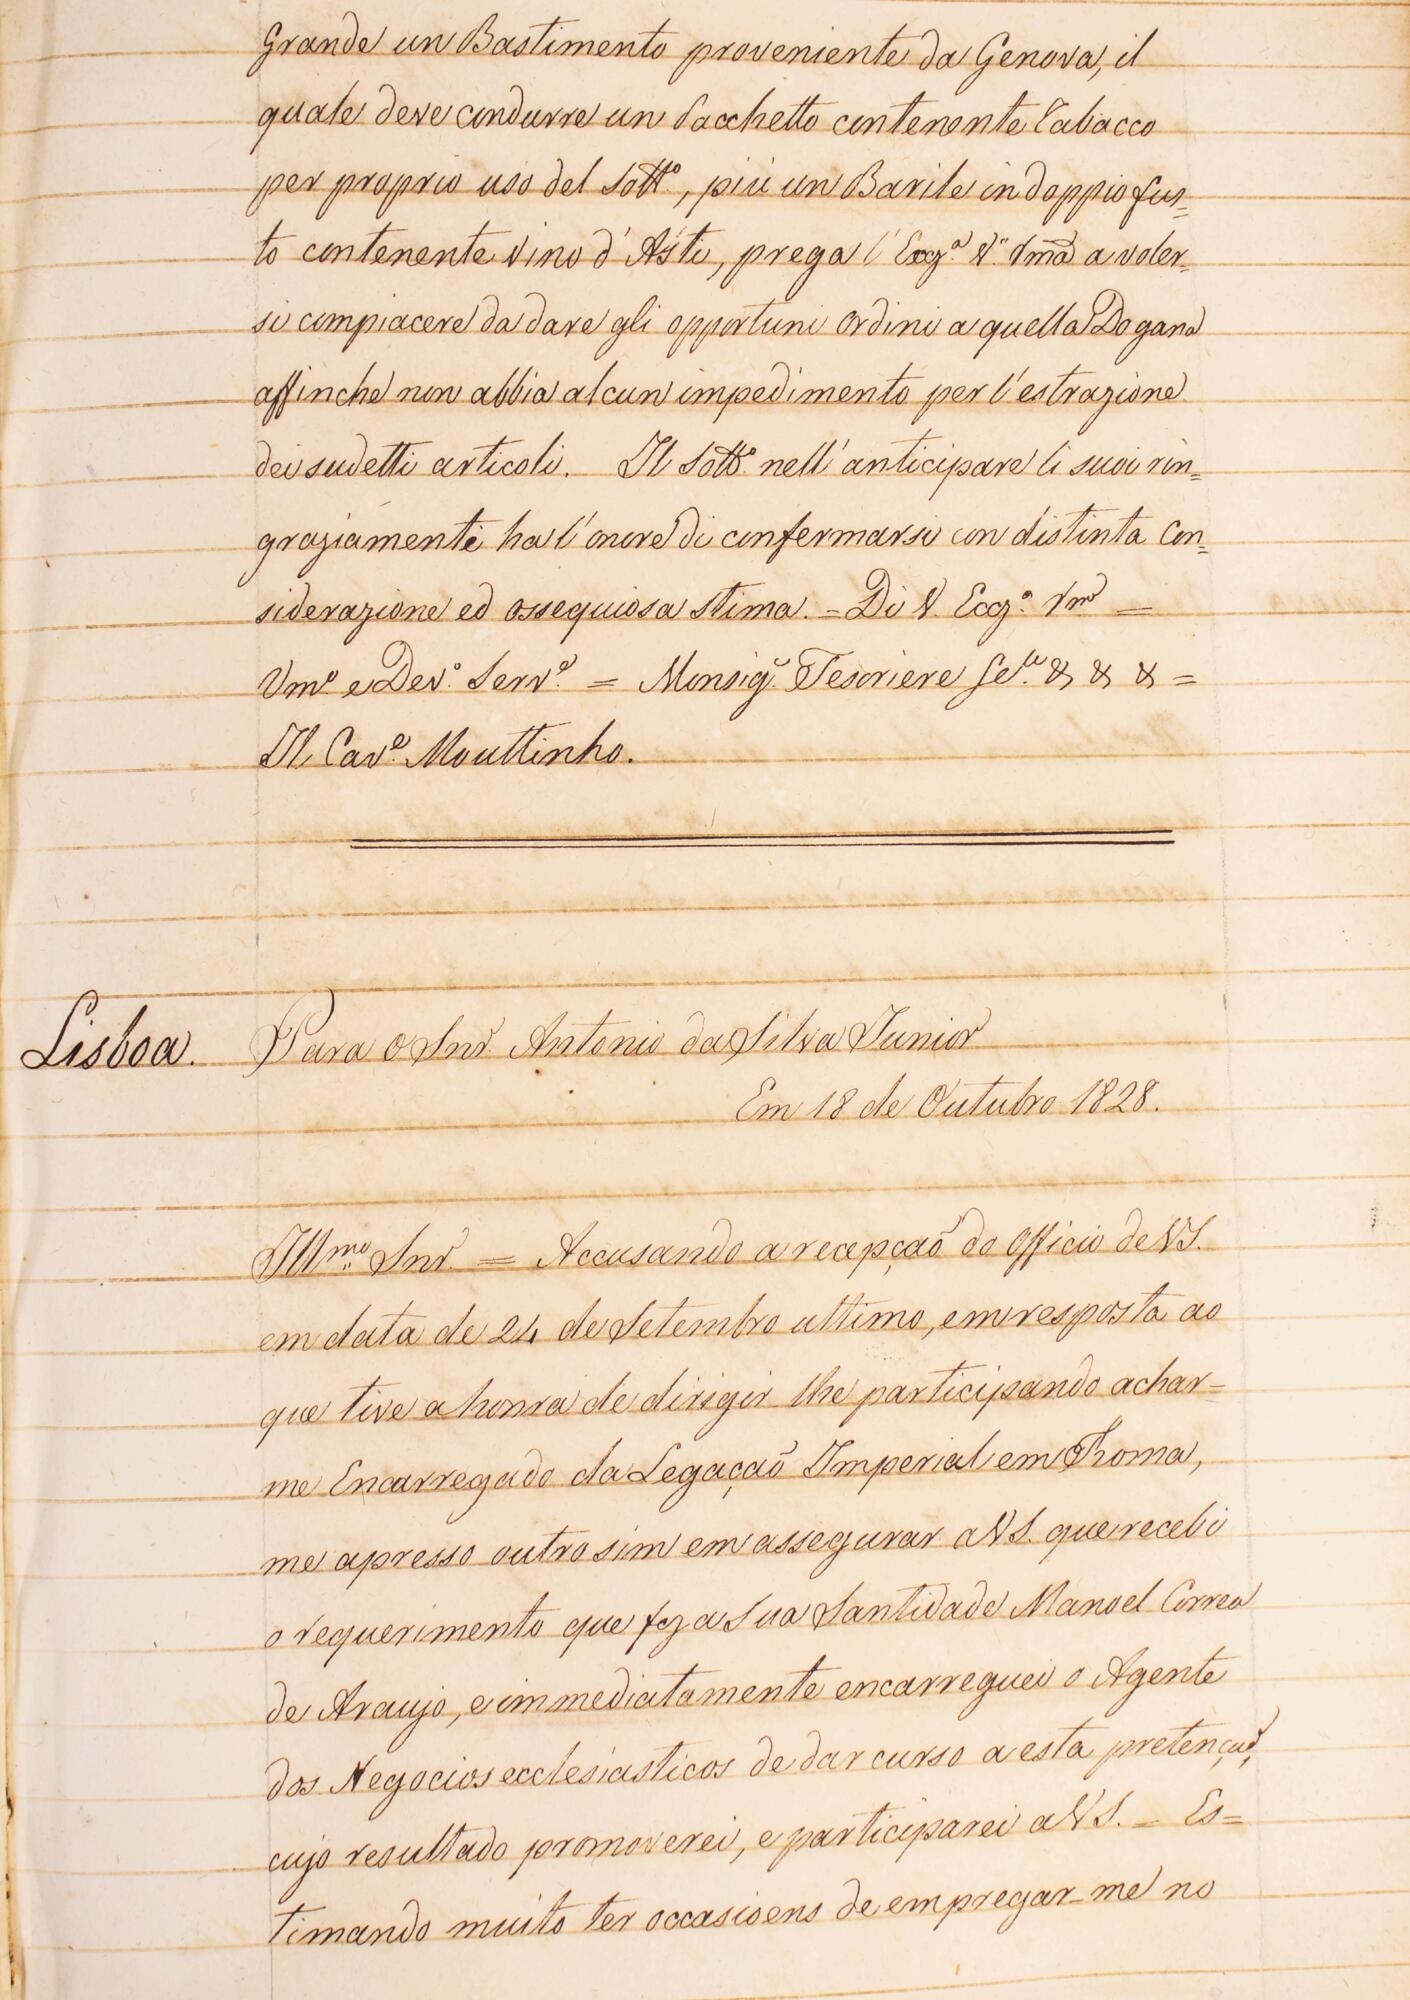 Grande un Bastimento proveniente da Genova, il
quale deve condurre un Sacchetto contenente Tabacco
per proprio uso del Sotto., più un Barile in doppio fus=
to contenente Vino d'Asti, prega l'Eccza. V." Ima a voler=
si compiacere da dare gli opportuni Ordini a quella Dogana
affinche non abbia alcun impedimento per l'estrazione
dei sudetti articoli. Il Sotto. nell'anticipare li suoi rin=
graziamenti ha l'onore di confermarsi con distinta Con=
siderazione ed ossequiosa stima. = Di V. Eccza. =
Umo. e Devo. Serve. = Monsigr. Tesoriere & & & =
Il Cave. Mouttinho.
Lisboa. Para o Snr. Antonio da Silva Junior
Em 18 de Outubro 1828.
Illmo. Snr. = Accusando a recepçaõ do Officio de VS.
em data de 24 de Setembro ultimo, em resposta ao
que tive a honra de dirigir lhe participando achar=
me Encarregado da Legaçaõ Imperial em Roma,
me apresso outro sim em assegurar a VS. que recebi
o requerimento que fez a Sua Santidade Manoel Correa
de Araujo, e immediatamente encarreguei o Agente
dos Negocios ecclesiasticos de dar curso a esta pretençaõ,
cujo resultado promoverei, e participarei a VS. = Es=
timando muito ter occasioens de empregar-me no